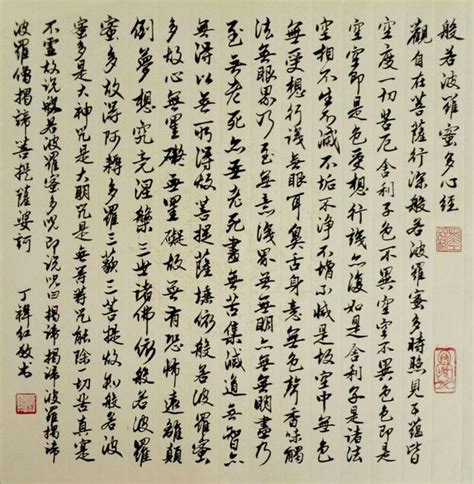 般若波羅蜜多心經
觀自在菩薩行深般若波羅蜜多時照見五蘊皆
空度一切苦厄舍利子色不異空空不異色色即是
空空即是色受想行識亦復如是舍利子是諸法
空相不生不滅不垢不淨不增不減故空中無色
無受想行識無眼耳鼻舌身意無色聲香味觸
法無眼界乃至無意識界無無明盡乃
至無老死亦無老死盡無苦集滅道無智亦
無得以無所得故菩提薩埵依般若波羅蜜
多故心無罣礙無罣礙故無有恐怖遠離顛
倒夢想究竟涅槃三世諸佛依般若波羅
蜜多故得阿耨多羅三藐三菩提故知般若波
蜜多是大神咒是大明咒是無等等咒能除一切苦真實
不虛故說般若波羅蜜多咒即說咒曰揭諦揭諦波羅揭諦
波羅僧揭諦菩提薩婆訶
丁红敬书